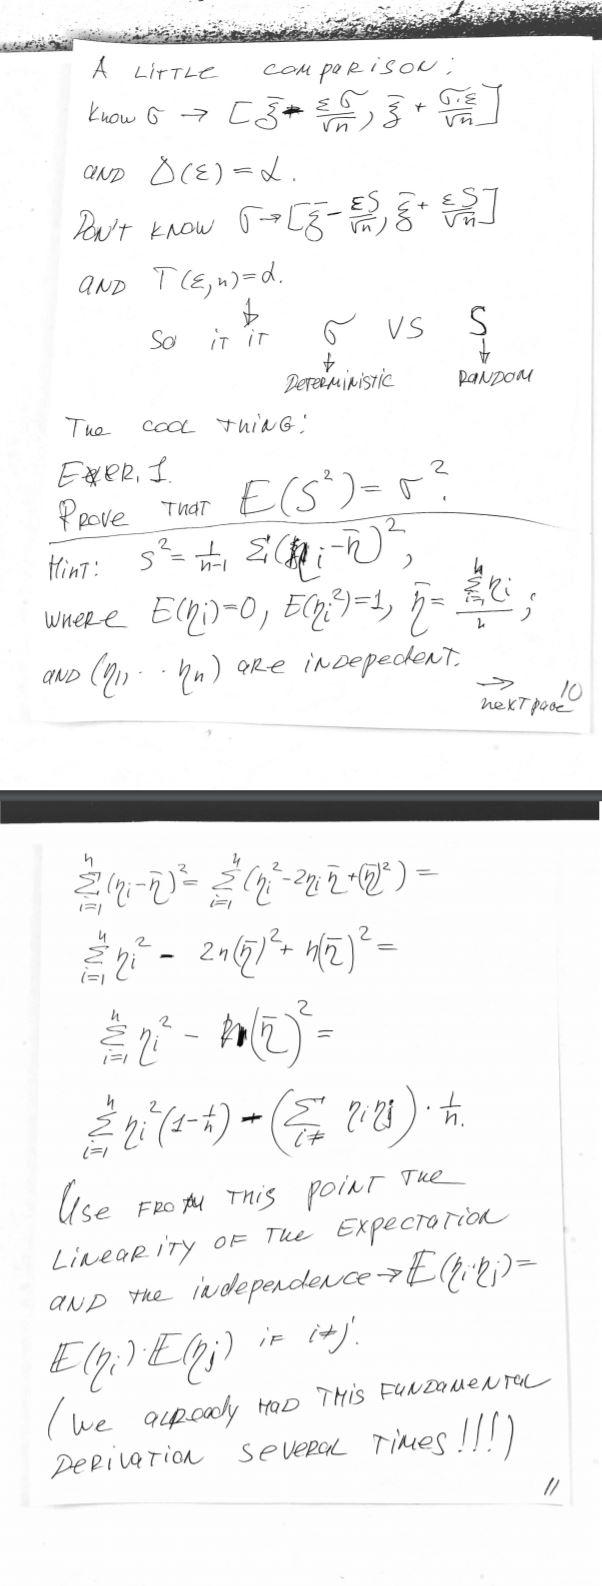 A LITTLE COMPARISON:
KNOW σ → [ξ̄ - εσ/√n, ξ̄ + σ·ε/√n]
AND Δ(ε) = α.
DON'T KNOW σ → [ξ̄ - εS/√n, ξ̄ + εS/√n]
AND T(ε,n) = α.
↓
SO IT IT σ VS S
↓ ↓
DETERMINISTIC RANDOM
THE COOL THING:
EXER. 1.
PROVE THAT E(S²) = σ².
HINT: S² = 1/(n-1) Σ(ηi - η̄)²,
WHERE E(ηi)=0, E(ηi²)=1, η̄ = Σ_{i=1}^{n} ηi / n;
AND (η1, .. ηn) ARE INDEPEDENT.
→ 10
NEXT PAGE
Σ_{i=1}^{n} (ηi - η̄)² = Σ_{i=1}^{n} (ηi² - 2ηi η̄ + (η̄)²) =
Σ_{i=1}^{n} ηi² - 2n(η̄)² + n(η̄)² =
Σ_{i=1}^{n} ηi² - n(η̄)² =
Σ_{i=1}^{n} ηi² (1 - 1/n) - (Σ_{i≠} ηi ηj) · 1/n.
USE FROM THIS POINT THE
LINEARITY OF THE EXPECTATION
AND THE INDEPENDENCE → E(ηi·ηj) =
E(ηi)·E(ηj) IF i≠j.
(WE ALREADY HAD THIS FUNDAMENTAL
DERIVATION SEVERAL TIMES!!!)
11